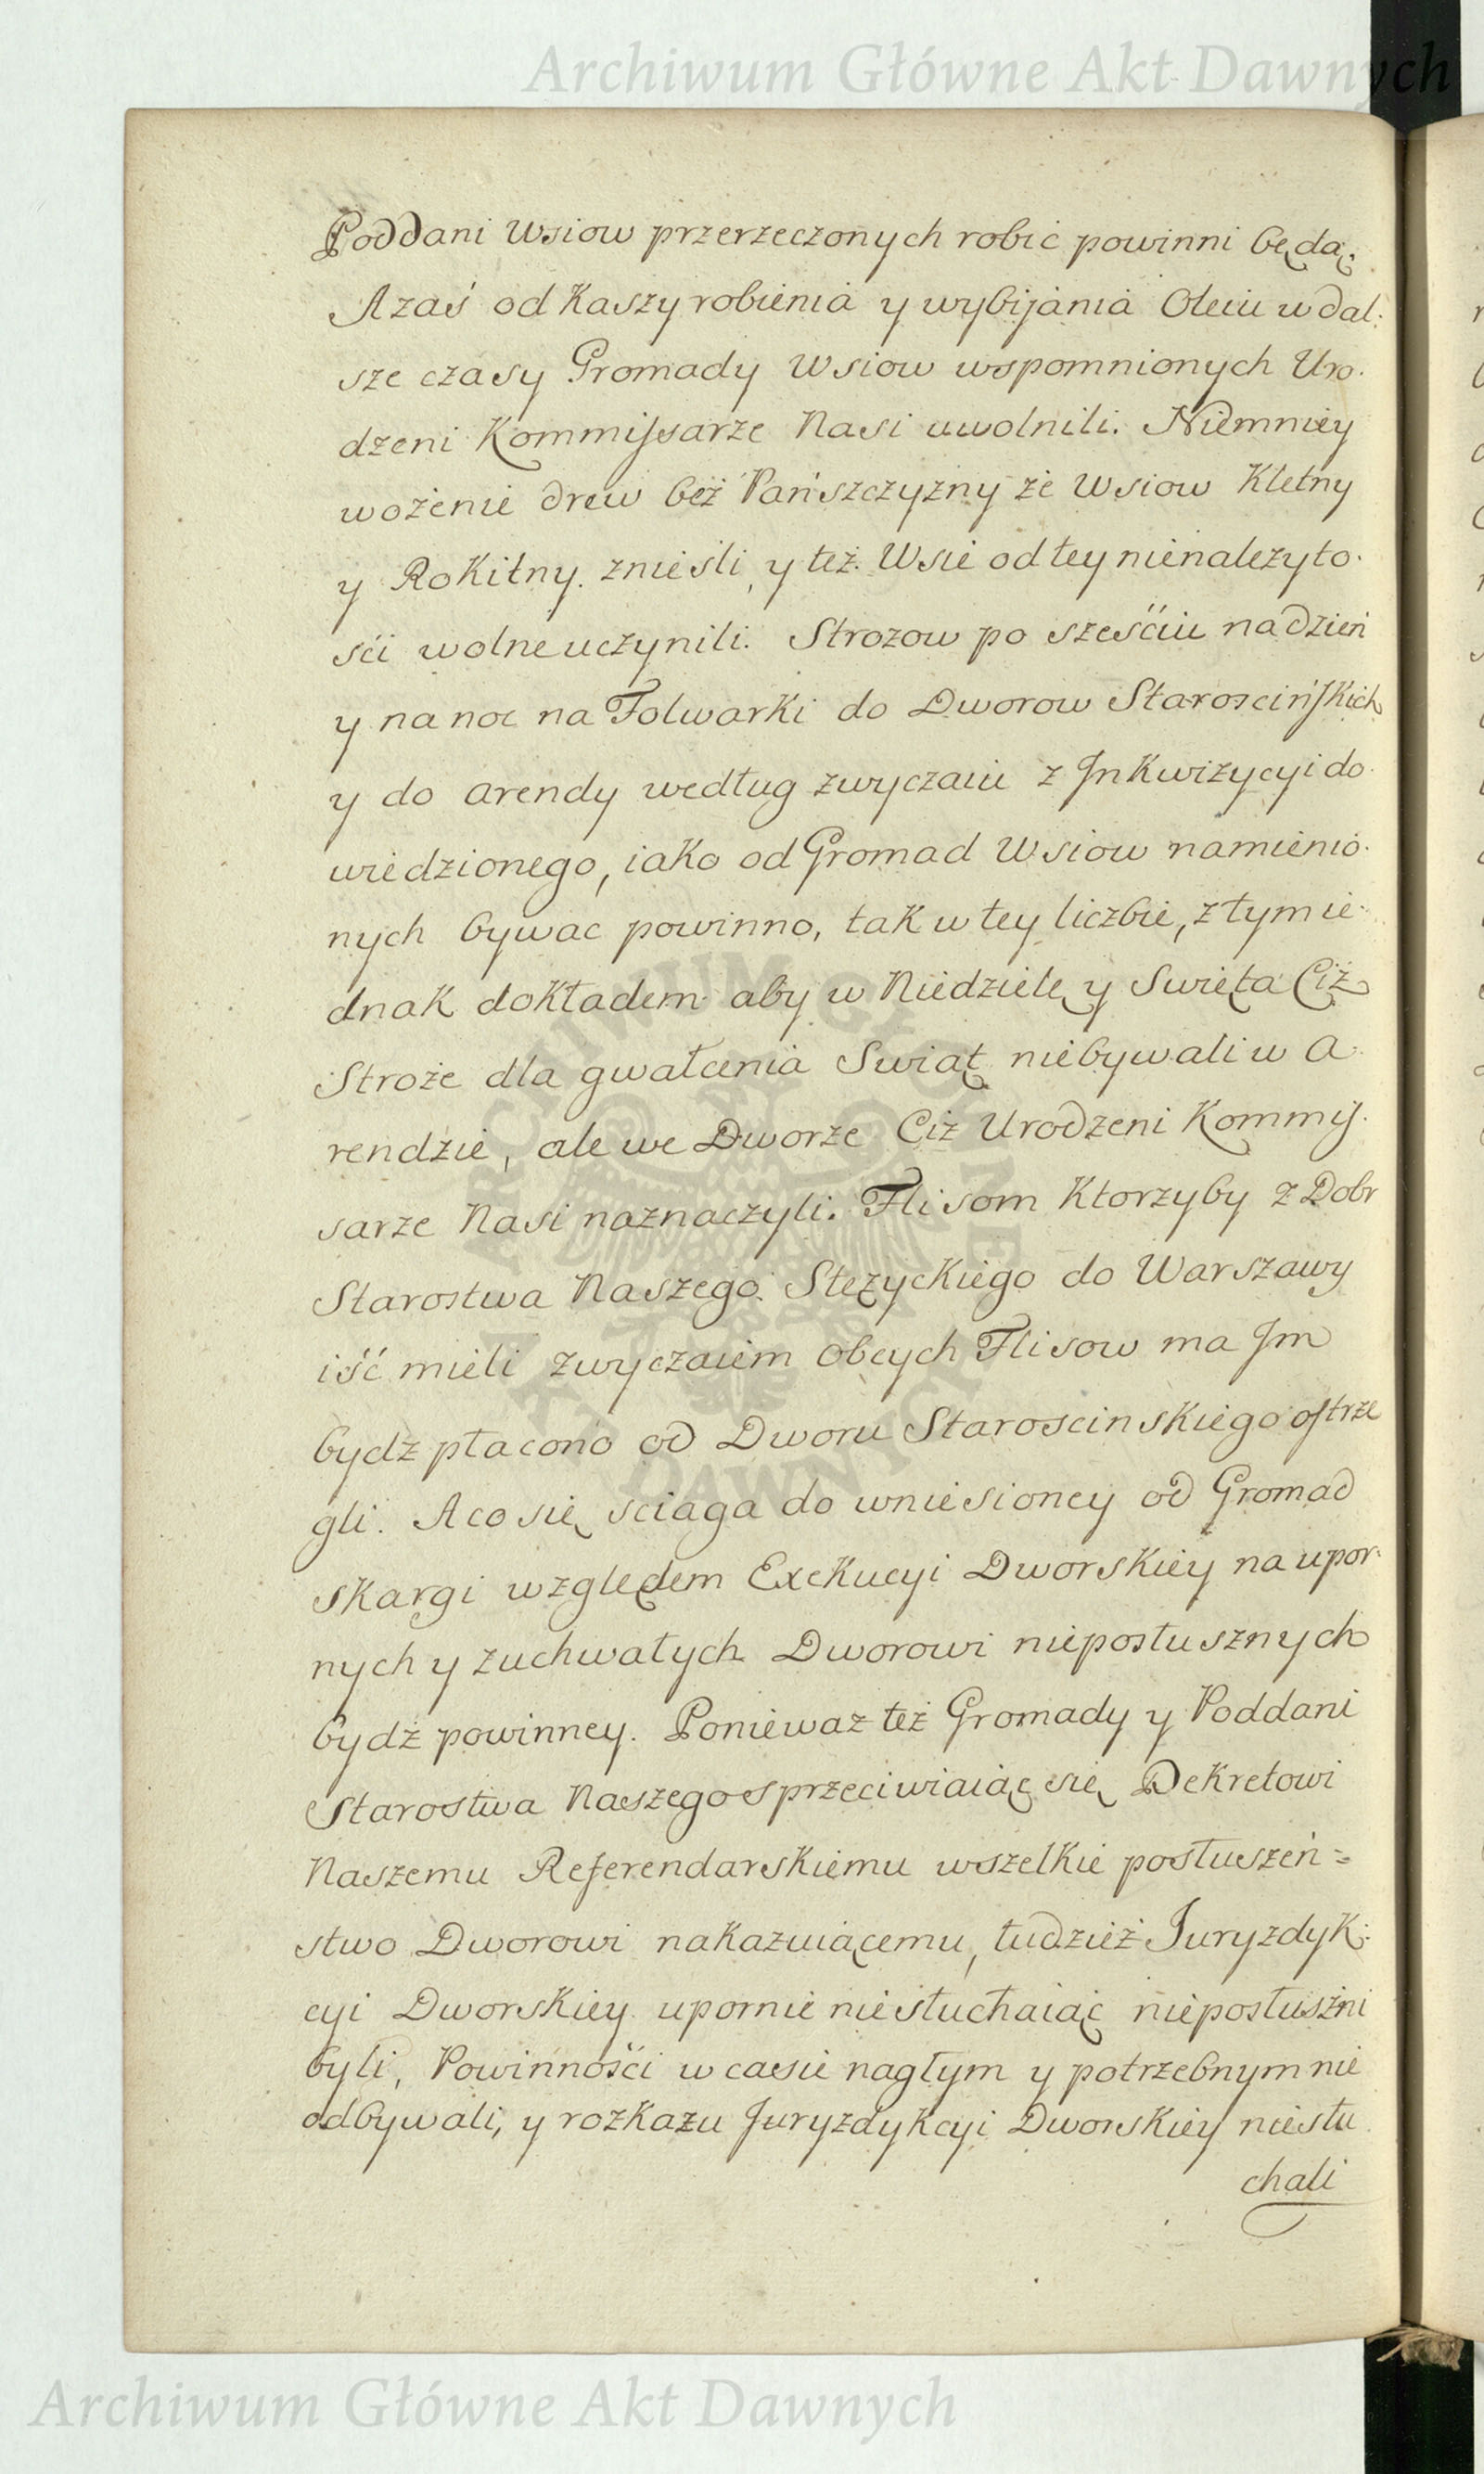 Archiwum Główne Akt Dawnych
Poddani Wsiow przerzeczonych robic powinni będą.
A zaś od Kaszy robienia y wybijania Oleiu w dal:
sze czasy Gromady Wsiow wspomnionych Uro.
dzeni Kommissarze Nasi uwolnili. Niemniey
wożenie drew beż Pańszczyzny że Wsiow Kletny
y Rokitny. znieśli, y też. Wsie od tey nienależyto.
ści wolne uczynili. Strozow po sześciu na dzień
y na noc na Folwarki do Dworow Starościńskich
y do arendy według zwyczaiu z Inkwizycyi do.
wiedzionego, iako od Gromad Wsiow namienio.
nych bywac powinno, tak w tey liczbie, z tym ie.
dnak dokładem aby w Niedzielę y Swięta Ciż
Stroże dla gwałcenia Swiąt niebywali w A.
rendzie, ale we Dworze Ciż Urodzeni Kommis.
sarze Nasi naznaczyli. Flisom Ktorzyby z Dobr
Starostwa Naszego Stężyckiego do Warszawy
iść mieli zwyczaiem obcych Flisow ma Im
bydz płacono od Dworu Staroscinskiego ostrze
gli. A co się sciaga do wniesioney od Gromad
skargi względem Exekucyi Dworskiey na upor.
nych y zuchwałych Dworowi niepostusznych
bydź powinney. Poniewaz też Gromady y Poddani
Starostwa Naszego sprzeciwiaiąc się Dekretowi
Naszemu Referendarskiemu wszelkie posłuszeń=
stwo Dworowi nakazuiącemu, tudzież Juryzdyk:
cyi Dworskiey upornie niesłuchaiąc niepostuszni
byli, Powinności w casie nagłym y potrzebnym nie
odbywali, y rozkazu Juryzdykcyi Dworskiey niesłu
chali
ARCHIWUM GŁÓWNE
AKT DAWNYCH
Archiwum Główne Akt Dawnych